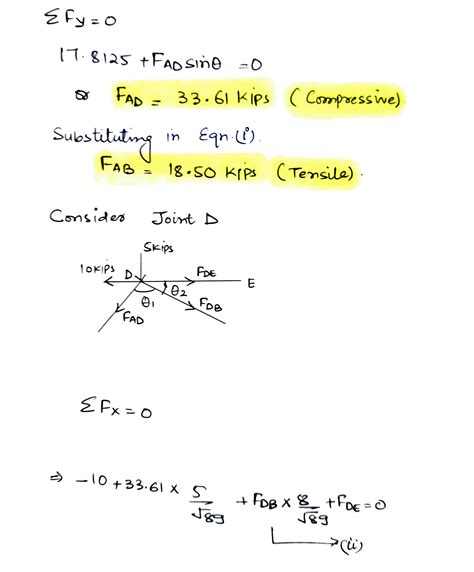 ΣFy = 0
17.8125 + FAD sinθ = 0
or FAD = 33.61 kips (Compressive)
Substituting in Eqn.(i).
FAB = 18.50 kips (Tensile).
Consider Joint D
5kips
10kips D FDE E
θ1 θ2 FDB
FAD
ΣFx = 0
⇒ -10 + 33.61 × 5/√89 + FDB × 8/√89 + FDE = 0
→(ii)